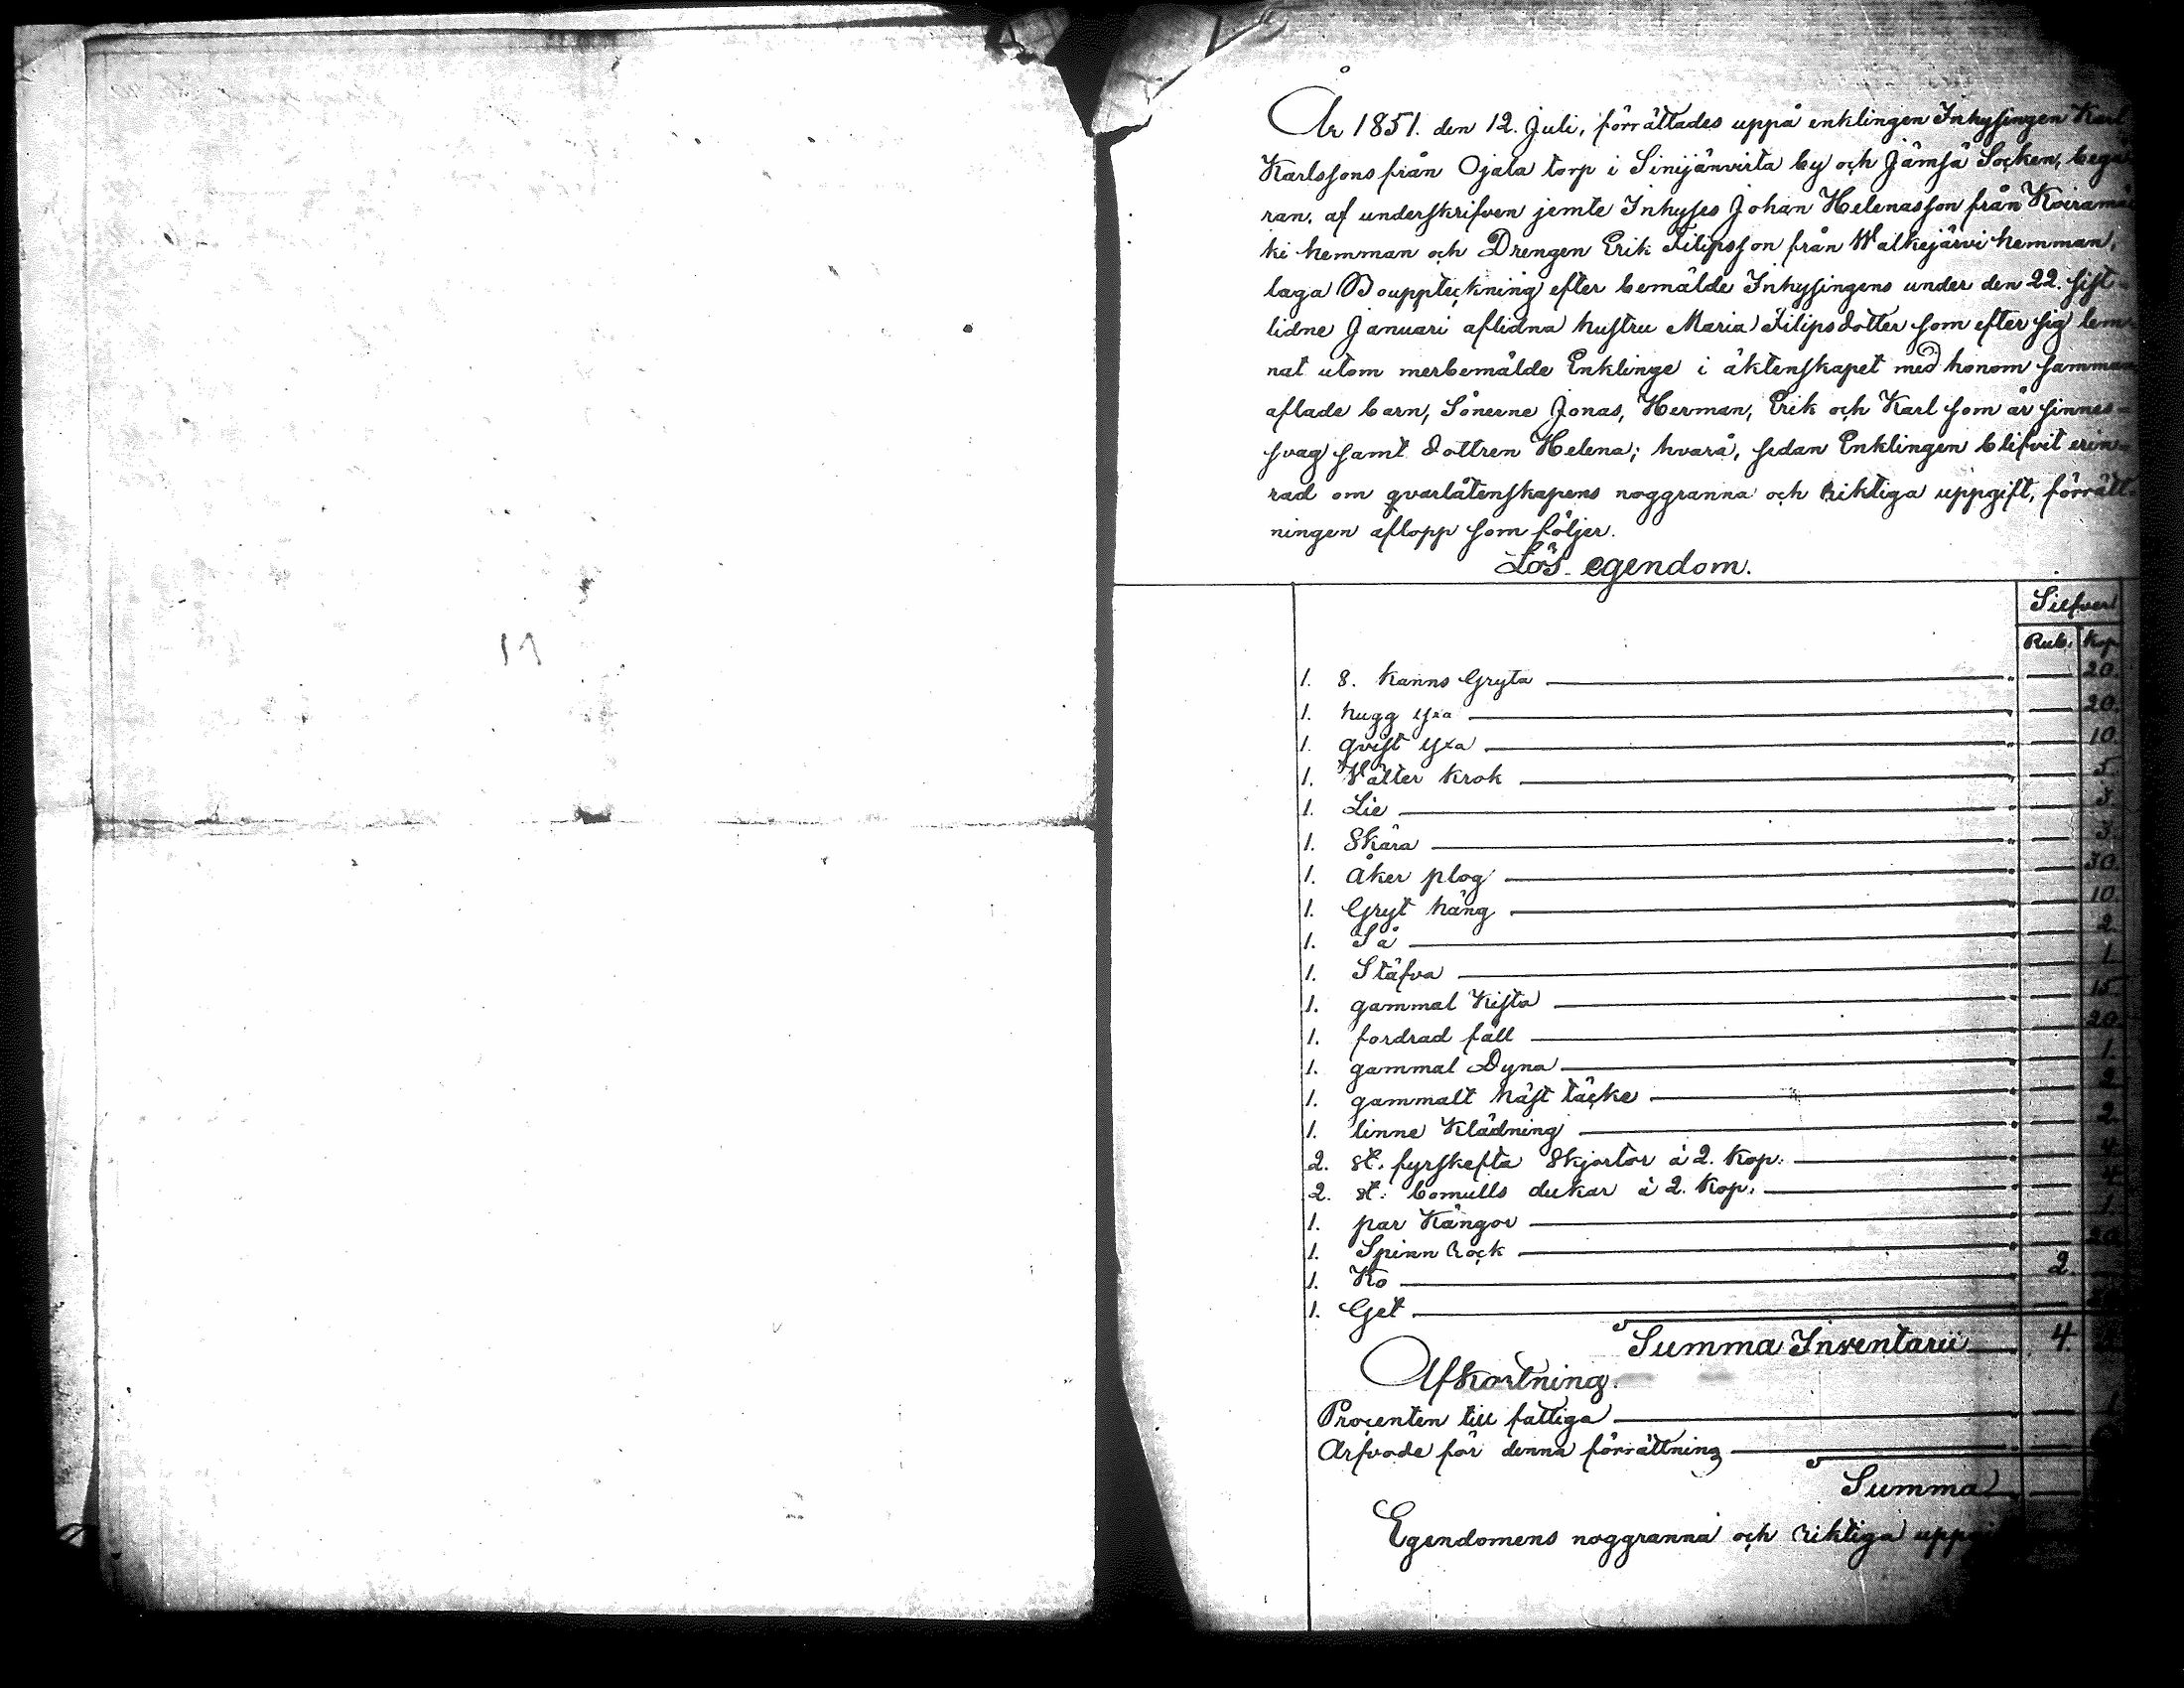 År 1851. den 12. Juli, förrättades uppå enklingen Inhysingen Karl
Karlssons från Ojala torp i Sinijänvirta by och Jämsä Socken, begä-
ran, af underskrifven jemte Inhyses Johan Helenasson från Koiramä-
ki hemman och Drengen Erik Filipsson från Walkejärvi hemman,
laga Bouppteckning efter bemälde Inhysingens under den 22. sist-
lidne Januari aflidna hustru Maria Filipsdotter som efter sig lem-
nat utom merbemälde Enklinge i äktenskapet med honom samman
aflade barn, Sönerne Jonas, Herman, Erik och Karl som är sinnes-
svag samt dottren Helena; hvarå, sedan Enklingen blifvit erin-
rad om qvarlåtenskapens noggranna och riktiga uppgift, förrätt-
ningen aflopp som följer.
Lös egendom.
Silfver
Rub. Kop.
1. 8. Kanns Gryta 20.
1. hugg yxa 20.
1. qvist yxa 10.
1. Välter Krok 5.
1. Lie 3.
1. Skära 3.
1. åker plog 30.
1. Gryt häng 10.
1. Så 2.
1. Stäfva 1.
1. gammal Kista 15
1. fordrad fäll 20.
1. gammal Dyna 1.
1. gammalt häst täcke 2.
1. linne Klädning 2.
2. st. fyrskefta Skjortor à 2. Kop. 4.
2. st. bomulls dukar à 2. Kop. 4.
1. par Kängor 1.
1. Spinn rock 20.
1. Ko 2.
1. Get
Summa Inventarii 4.
Afkortning.
Procenten till fattiga 1.
Arfvode för denna förrättning
Summa
Egendomens noggranna och riktiga